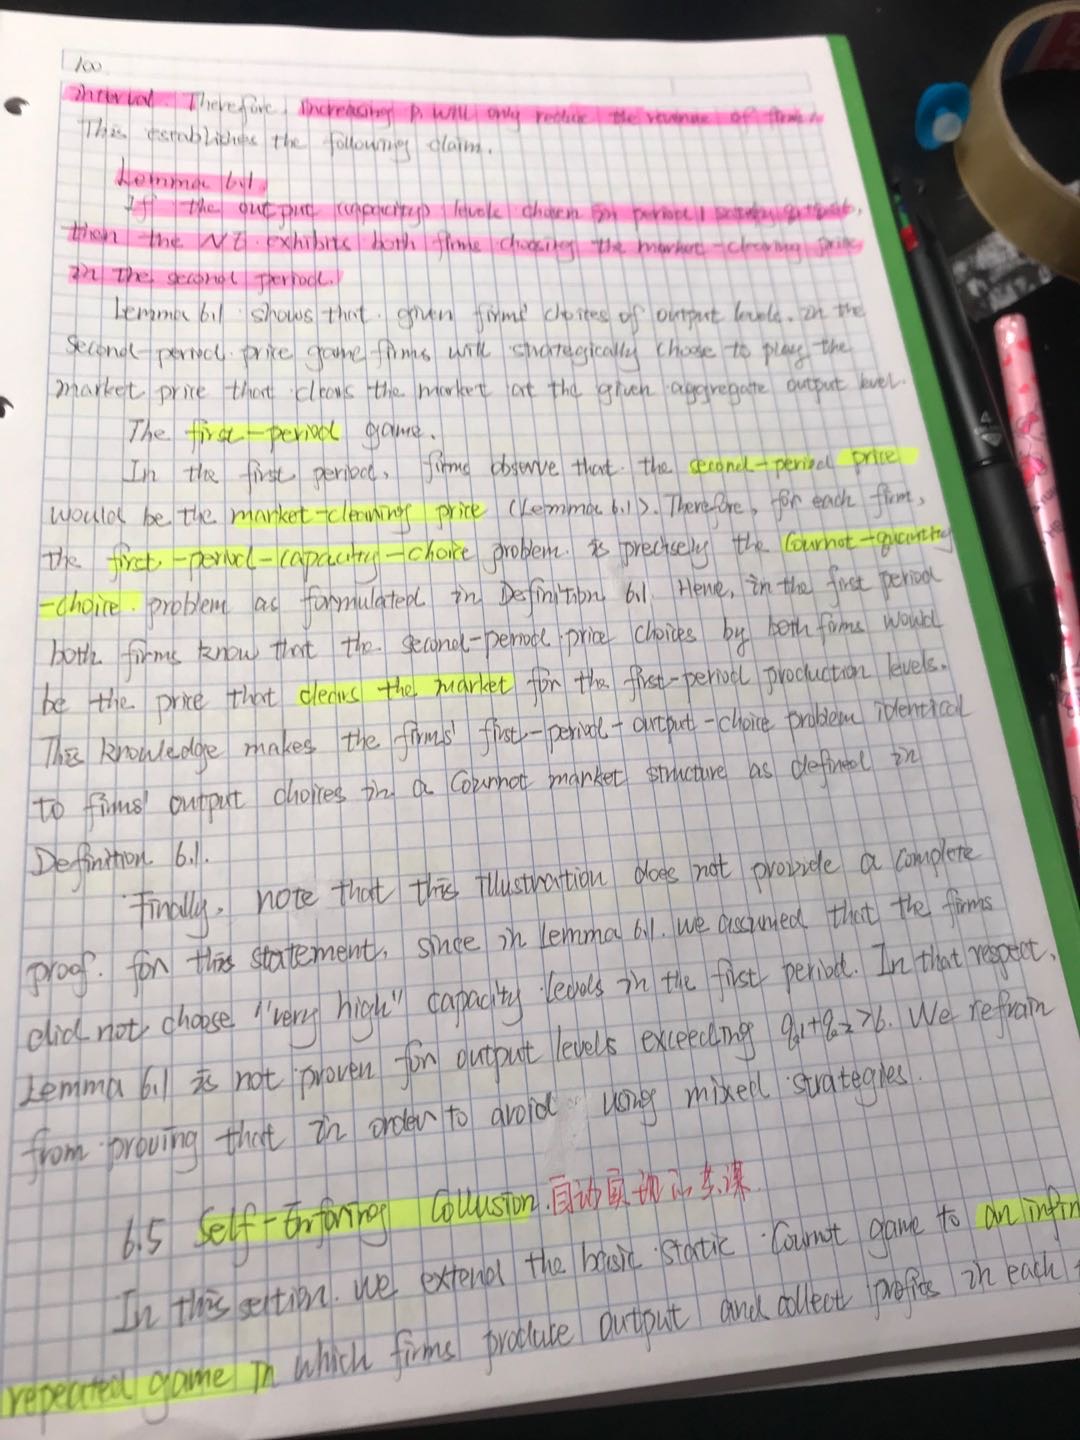 100
interval. Therefore, increasing p will only reduce the revenue of firm
This establishes the following claim.
Lemma 6.1.
If the output (capacity) levels chosen in period 1
then the NE exhibits both firms choosing the market-clearing price
in the second period.
Lemma 6.1 shows that given firms' choices of output levels. in the
second-period price game firms will strategically choose to play the
market price that clears the market at the given aggregate output level.
The first-period game.
In the first period, firms observe that the second-period price
would be the market-clearing price (Lemma 6.1). Therefore, for each firm,
the first-period-capacity-choice problem is precisely the Cournot-quantity
-choice problem as formulated in Definition 6.1. Hence, in the first period
both firms know that the second-period price choices by both firms would
be the price that clears the market for the first-period production levels.
This knowledge makes the firms' first-period-output-choice problem identical
to firms' output choices in a Cournot market structure as defined in
Definition 6.1.
Finally, note that this illustration does not provide a complete
proof. for this statement, since in Lemma 6.1. we assumed that the firms
did not choose "very high" capacity levels in the first period. In that respect,
Lemma 6.1 is not proven for output levels exceeding q1+q2>6. We refrain
from proving that in order to avoid using mixed strategies.
6.5 Self-Enforcing Collusion. 自动
In this section. we extend the basic static Cournot game to an infin
repeated game in which firms produce output and collect profits in each